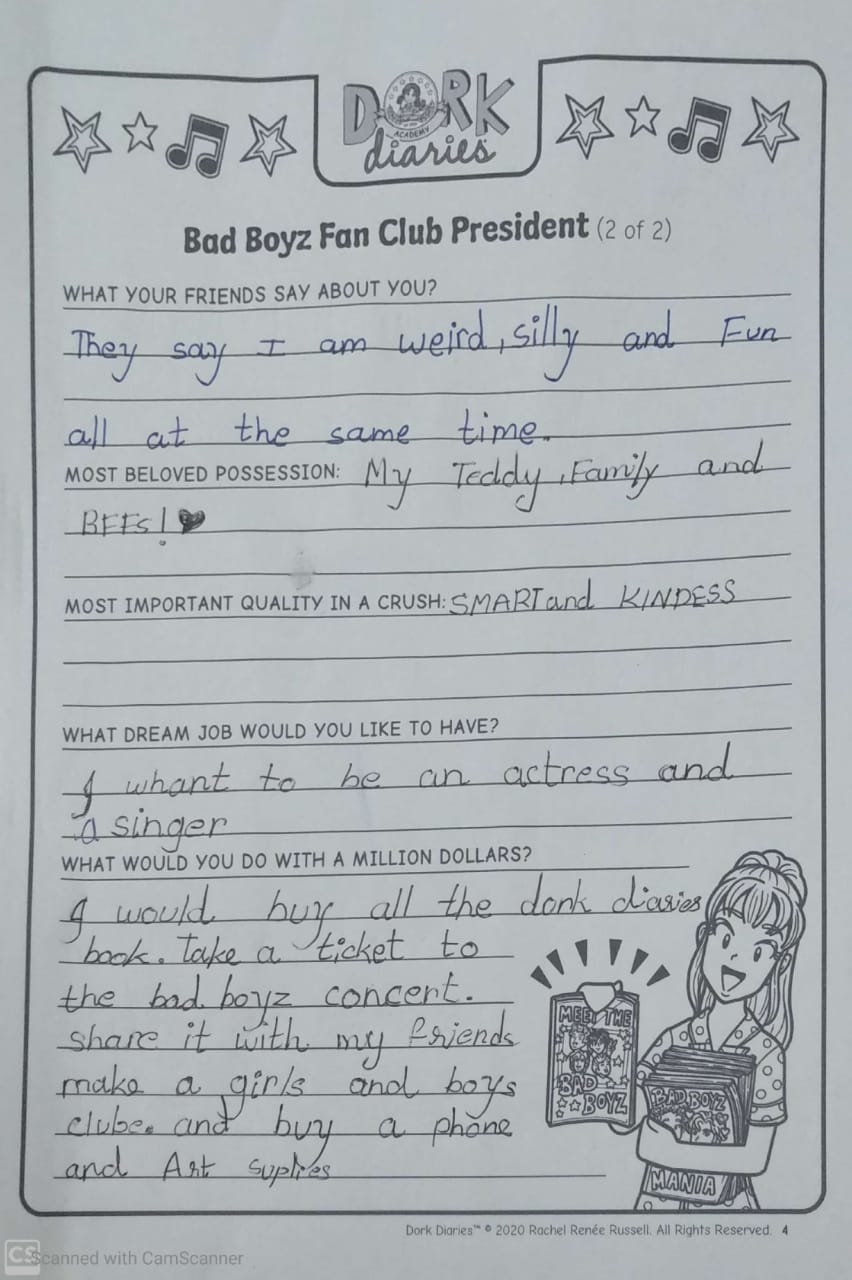 DORK
ACADEMY
diaries
Bad Boyz Fan Club President (2 of 2)
WHAT YOUR FRIENDS SAY ABOUT YOU?
They say I am weird, silly and Fun
all at the same time.
MOST BELOVED POSSESSION: My Teddy, Family and
BFFs! ♥
MOST IMPORTANT QUALITY IN A CRUSH: SMART and KINDESS
WHAT DREAM JOB WOULD YOU LIKE TO HAVE?
I whant to be an actress and
a singer
WHAT WOULD YOU DO WITH A MILLION DOLLARS?
I would buy all the dork diaries
book. Take a ticket to
the bad boyz concert.
share it with my friends
make a girls and boys
clube. and buy a phone
and Art suplies
MEET THE
BAD
BOYZ
BAD BOYZ
MANIA
Dork Diaries™ © 2020 Rachel Renée Russell. All Rights Reserved. 4
CS Scanned with CamScanner